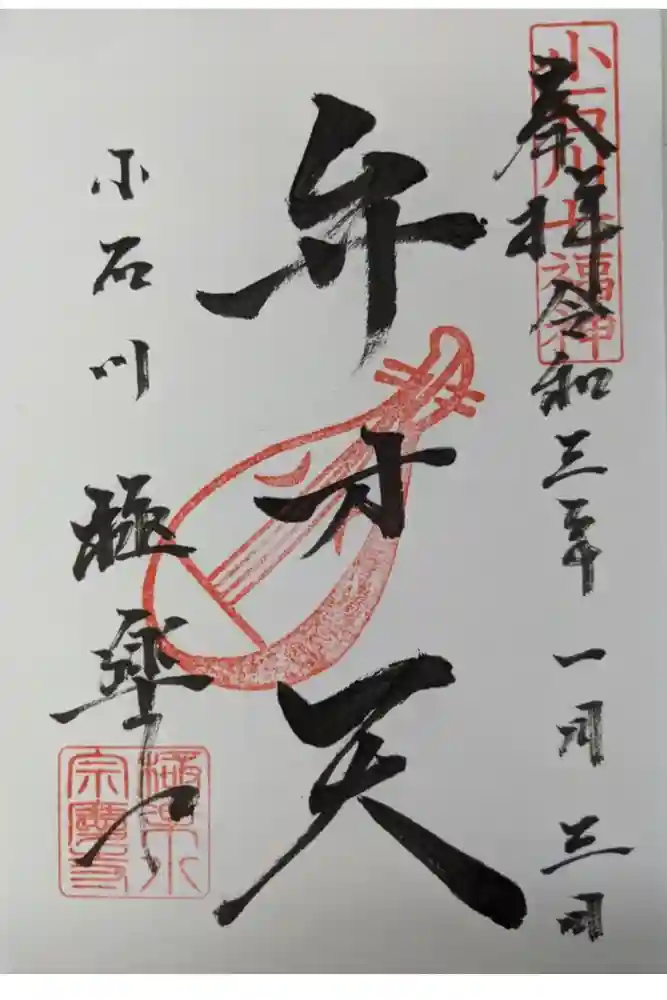 奉拝 令和三年 一月 三日
小石川七福神
弁才天
小石川 極楽水
極楽水
宗慶寺